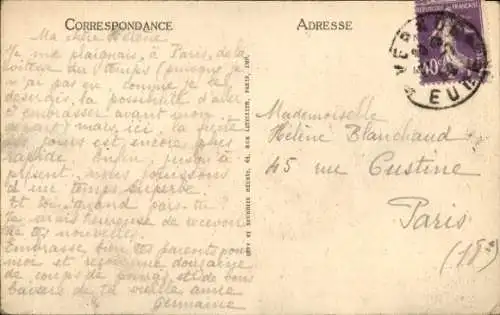 CORRESPONDANCE
ADRESSE
Ma chère Hélène
Je me plaignais, à Paris, de la
du temps (puisque je
n'ai pas eu, comme je le
désirais, la possibilité d'aller
t'embrasser avant mon
départ) mais ici, la
des jours est encore plus
rapide. Enfin, jusqu'à
présent, nous jouissons
d'un temps superbe.
Et toi, quand pars-tu?
Je serais heureuse de recevoir
de tes nouvelles.
Embrasse bien tes parents pour
moi et reçois une douzaine
de coups de poing et de bons
baisers de ta vieille amie
Germaine
LEVY ET NEURDEIN RÉUNIS, 44, RUE LETELLIER, PARIS, IMP.
RÉPUBLIQUE FRANÇAISE
40c
EURE
Mademoiselle
Hélène Blanchaud
45 rue Custine
Paris
(18e)